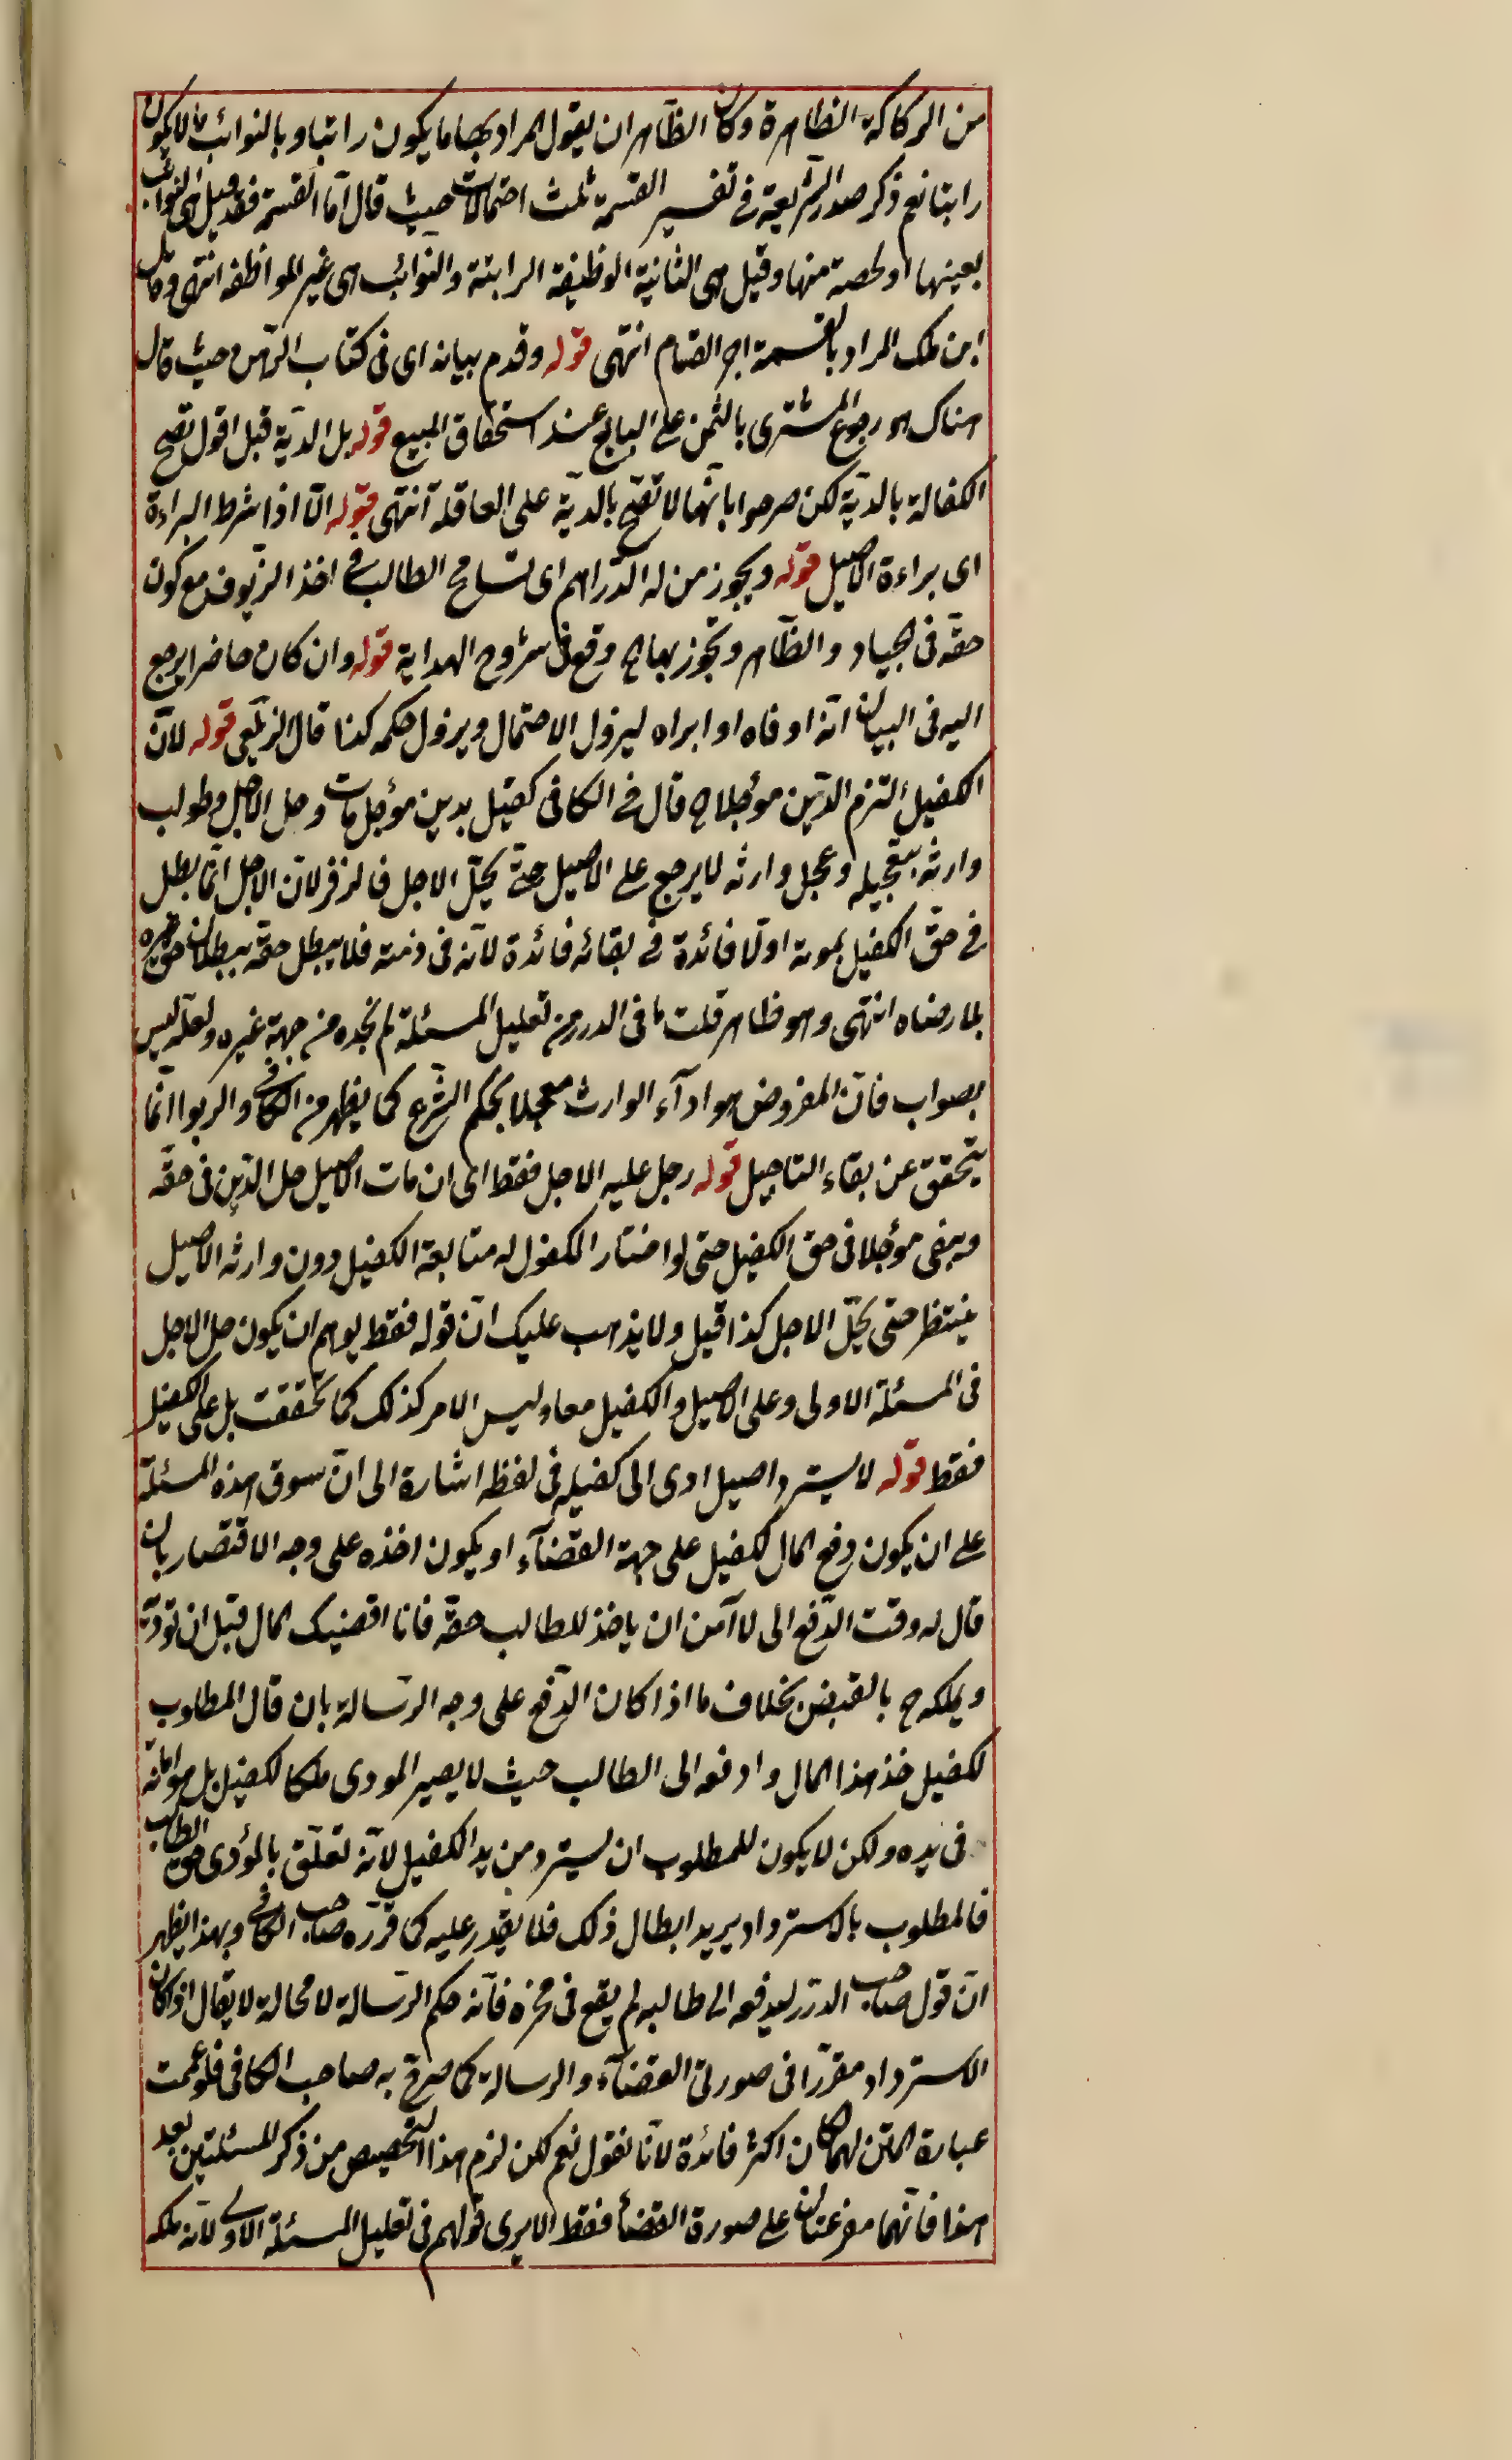 من الركاكة الظاهرة وكان الظاهر ان يقول المراد بها ما يكون راتبا وبالنوائب ما لا يكون
راتبا نعم ذكر صدر الشريعة في تفسير القسمة ثلث احتمالات حيث قال اما القسمة فقد قيل هي النوائب
بعينها او حصة منها وقيل هي الثانية الوظيفة الراتبة والنوائب هي غير الموظفة انتهى وقال
ابن ملك المراد بالقسمة اجر القسام انتهى قوله وقدم بيانه اى فى كتاب الرهن حيث قال
هناك هو رجوع المشترى بالثمن على البايع عند استحقاق المبيع قوله بل الدية قيل اقول تصح
الكفالة بالدية لكن صرحوا بانها لا تصح بالدية على العاقلة انتهى قوله الا اذا شرط البراءة
اى براءة الاصيل قوله ويجوز من له الدراهم اى تسامح الطالب فى اخذ الزيوف مع كون
حقه فى الجياد والظاهر وتجوز بها كما وقع فى شروح الهداية قوله وان كان حاضرا يرجع
اليه فى البيان انه اوفاه او ابراه ليزول الاحتمال ويزول حكمه كذا قال الزيلعى قوله لان
الكفيل التزم الدين مؤجلا قال فى الكافى كفيل بدين مؤجل مات وحل الاجل وطولب
وارثه بتعجيله وعجل وارثه لا يرجع على الاصيل حتى يحل الاجل خلافا لزفر لان الاجل انما بطل
فى حق الكفيل بموته اذ لا فائدة فى بقائه فائدة لانه فى ذمته فلا يبطل حقه ببطلان حق غيره
بلا رضاه انتهى وهو ظاهر قلت ما فى الدرر من تعليل المسئلة لم نجده من جهة غيره ولعله ليس
بصواب فان المفروض هو ادآء الوارث معجلا بحكم الشرع كما يظهر من الكافى والربوا انما
يتحقق عن بقاء التاجيل قوله رجل عليه الاجل فقط اى ان مات الاصيل حل الدين فى حقه
ويبقى مؤجلا فى حق الكفيل حتى لو اختار المكفول له متابعة الكفيل دون وارثه الاصيل
ينتظر حتى يحل الاجل كذا قيل ولا يذهب عليك ان قوله فقط يوهم ان يكون حل الاجل
فى المسئلة الاولى وعلى الاصيل والكفيل معا وليس الامر كذلك كما تحققت بل على الكفيل
فقط قوله لا يسترد اصيل ادى الى كفيله فى لفظه اشارة الى ان سوق هذه المسئلة
على ان يكون دفع المال للكفيل على جهة القضآء او يكون اخذه على وجه الاقتصار بان
قال له وقت الدفع انى لا آمن ان ياخذ الطالب حقه فانا اقضيك المال قبل ان تؤديه
ويملكه ح بالقبض بخلاف ما اذا كان الدفع على وجه الرسالة بان قال المطلوب
للكفيل خذ هذا المال وادفعه الى الطالب حيث لا يصير المودى ملكا للكفيل بل هو امانة
فى يده ولكن لا يكون للمطلوب ان يسترد من يد الكفيل لانه تعلق بالمؤدى حق الطالب
فالمطلوب بالاسترداد يريد ابطال ذلك فلا يقدر عليه كما قرره صاحب الكافى وبهذا يظهر
ان قول صاحب الدرر ليدفعه الى طالبه لم يقع فى محزه فانه حكم الرسالة لا محالة لا يقال اذا كان
الاسترداد مقررا فى صورتى القضآء والرسالة كما صرح به صاحب الكافى فلو عممت
عبارة المتن لهما كان اكثر فائدة لانا نقول نعم لكن لزم هذا التخصيص من ذكر المسئلتين بعد
هذا فانهما مفرعتان على صورة القضأ فقط الا يرى قولهم فى تعليل المسئلة الاولى لانه ملكه